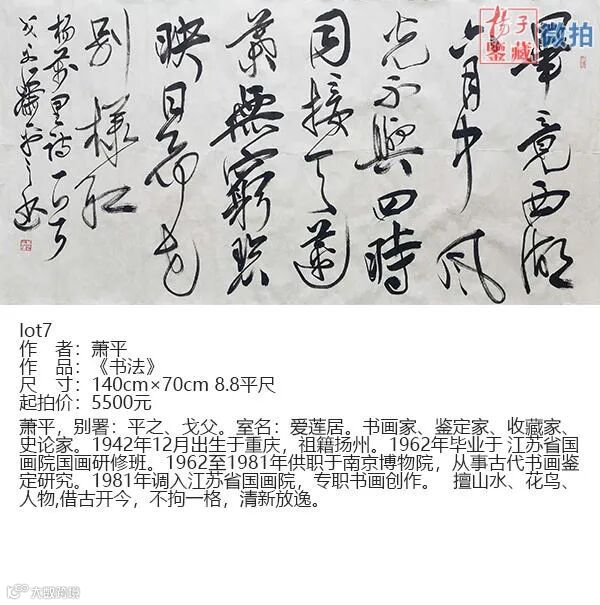 畢竟西湖
六月中風
光不與四時
同接天蓮
葉無窮碧
映日荷花
別樣紅
楊萬里詩一首
揚子 微拍
鑒藏
lot7
作 者：萧平
作 品：《书法》
尺 寸：140cm×70cm 8.8平尺
起拍价：5500元
萧平，别署：平之、戈父。室名：爱莲居。书画家、鉴定家、收藏家、
史论家。1942年12月出生于重庆，祖籍扬州。1962年毕业于 江苏省国
画院国画研修班。1962至1981年供职于南京博物院，从事古代书画鉴
定研究。1981年调入江苏省国画院，专职书画创作。 擅山水、花鸟、
人物,借古开今，不拘一格，清新放逸。
大数跨境